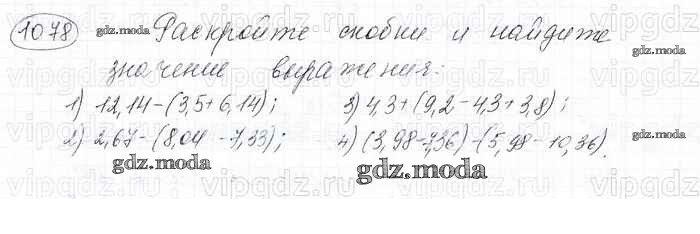 1078 gdz.moda Раскройте скобки и найдите gdz.moda
значение выражения:
1) 12,14-(3,5+6,14); 3) 4,3+(9,2-4,3+3,8);
2) 2,67-(8,04-7,33); 4) (3,98-7,36)-(5,98-10,36).
gdz.moda gdz.moda